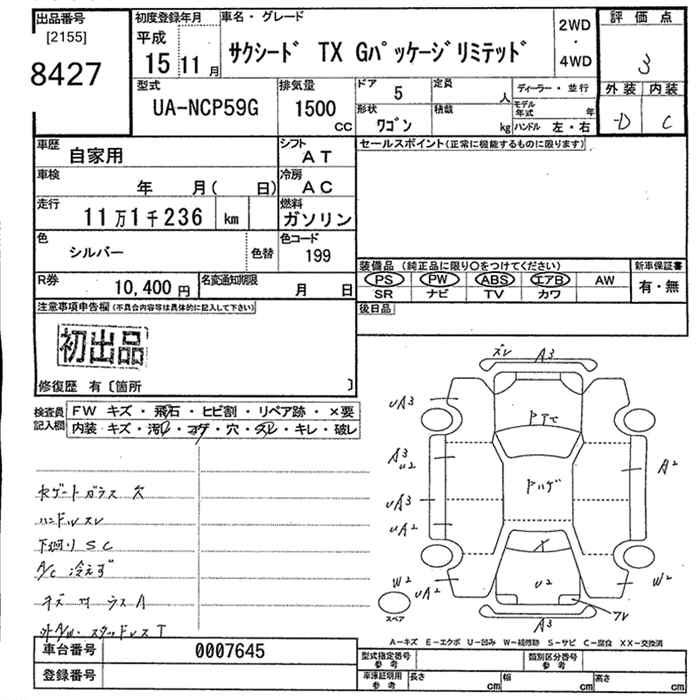 出品番号
[2155]
8427
初度登録年月
平成
15 11 月
車名・グレード
サクシード TX Gパッケージリミテッド
2WD
・
4WD
評価点
3
外装 内装
D C
型式
UA-NCP59G
排気量
1500
CC
ドア 5
定員 人
ディーラー・並行
モデル年式 年
形状 ワゴン
積載 kg
ハンドル 左・右
車歴
自家用
シフト
AT
セールスポイント(正常に機能するものに限ります)
車検
年 月( 日)
冷房
AC
走行
11万1千236 km
燃料
ガソリン
色
シルバー
色替
色コード
199
R券
10,400 円
名変通知期限
月 日
装備品 (純正品に限り○をつけてください)
PS PW ABS エアB AW
SR ナビ TV カワ
新車保証書
有・無
注意事項申告欄(不具合内容等は具体的に記入して下さい)
初出品
修復歴 有〔箇所 〕
後日品
検査員記入欄
FW キズ・飛石・ヒビ割・リペア跡・×要
内装 キズ・汚れ・コゲ・穴・スレ・キレ・破レ
ハンドルスレ
下廻りSC
A/C 冷えず
スレ A3
UA3
A3
U2
UA3
UA2
W2
UA2
A2
W2
U2
A3
スペア
A-キズ E-エクボ U-凹み W-補修跡 S-サビ C-腐食 XX-交換済
車台番号
0007645
登録番号
型式指定番号
参考
類別区分番号
参考
車庫証明用
参考
長さ cm
幅 cm
高さ cm